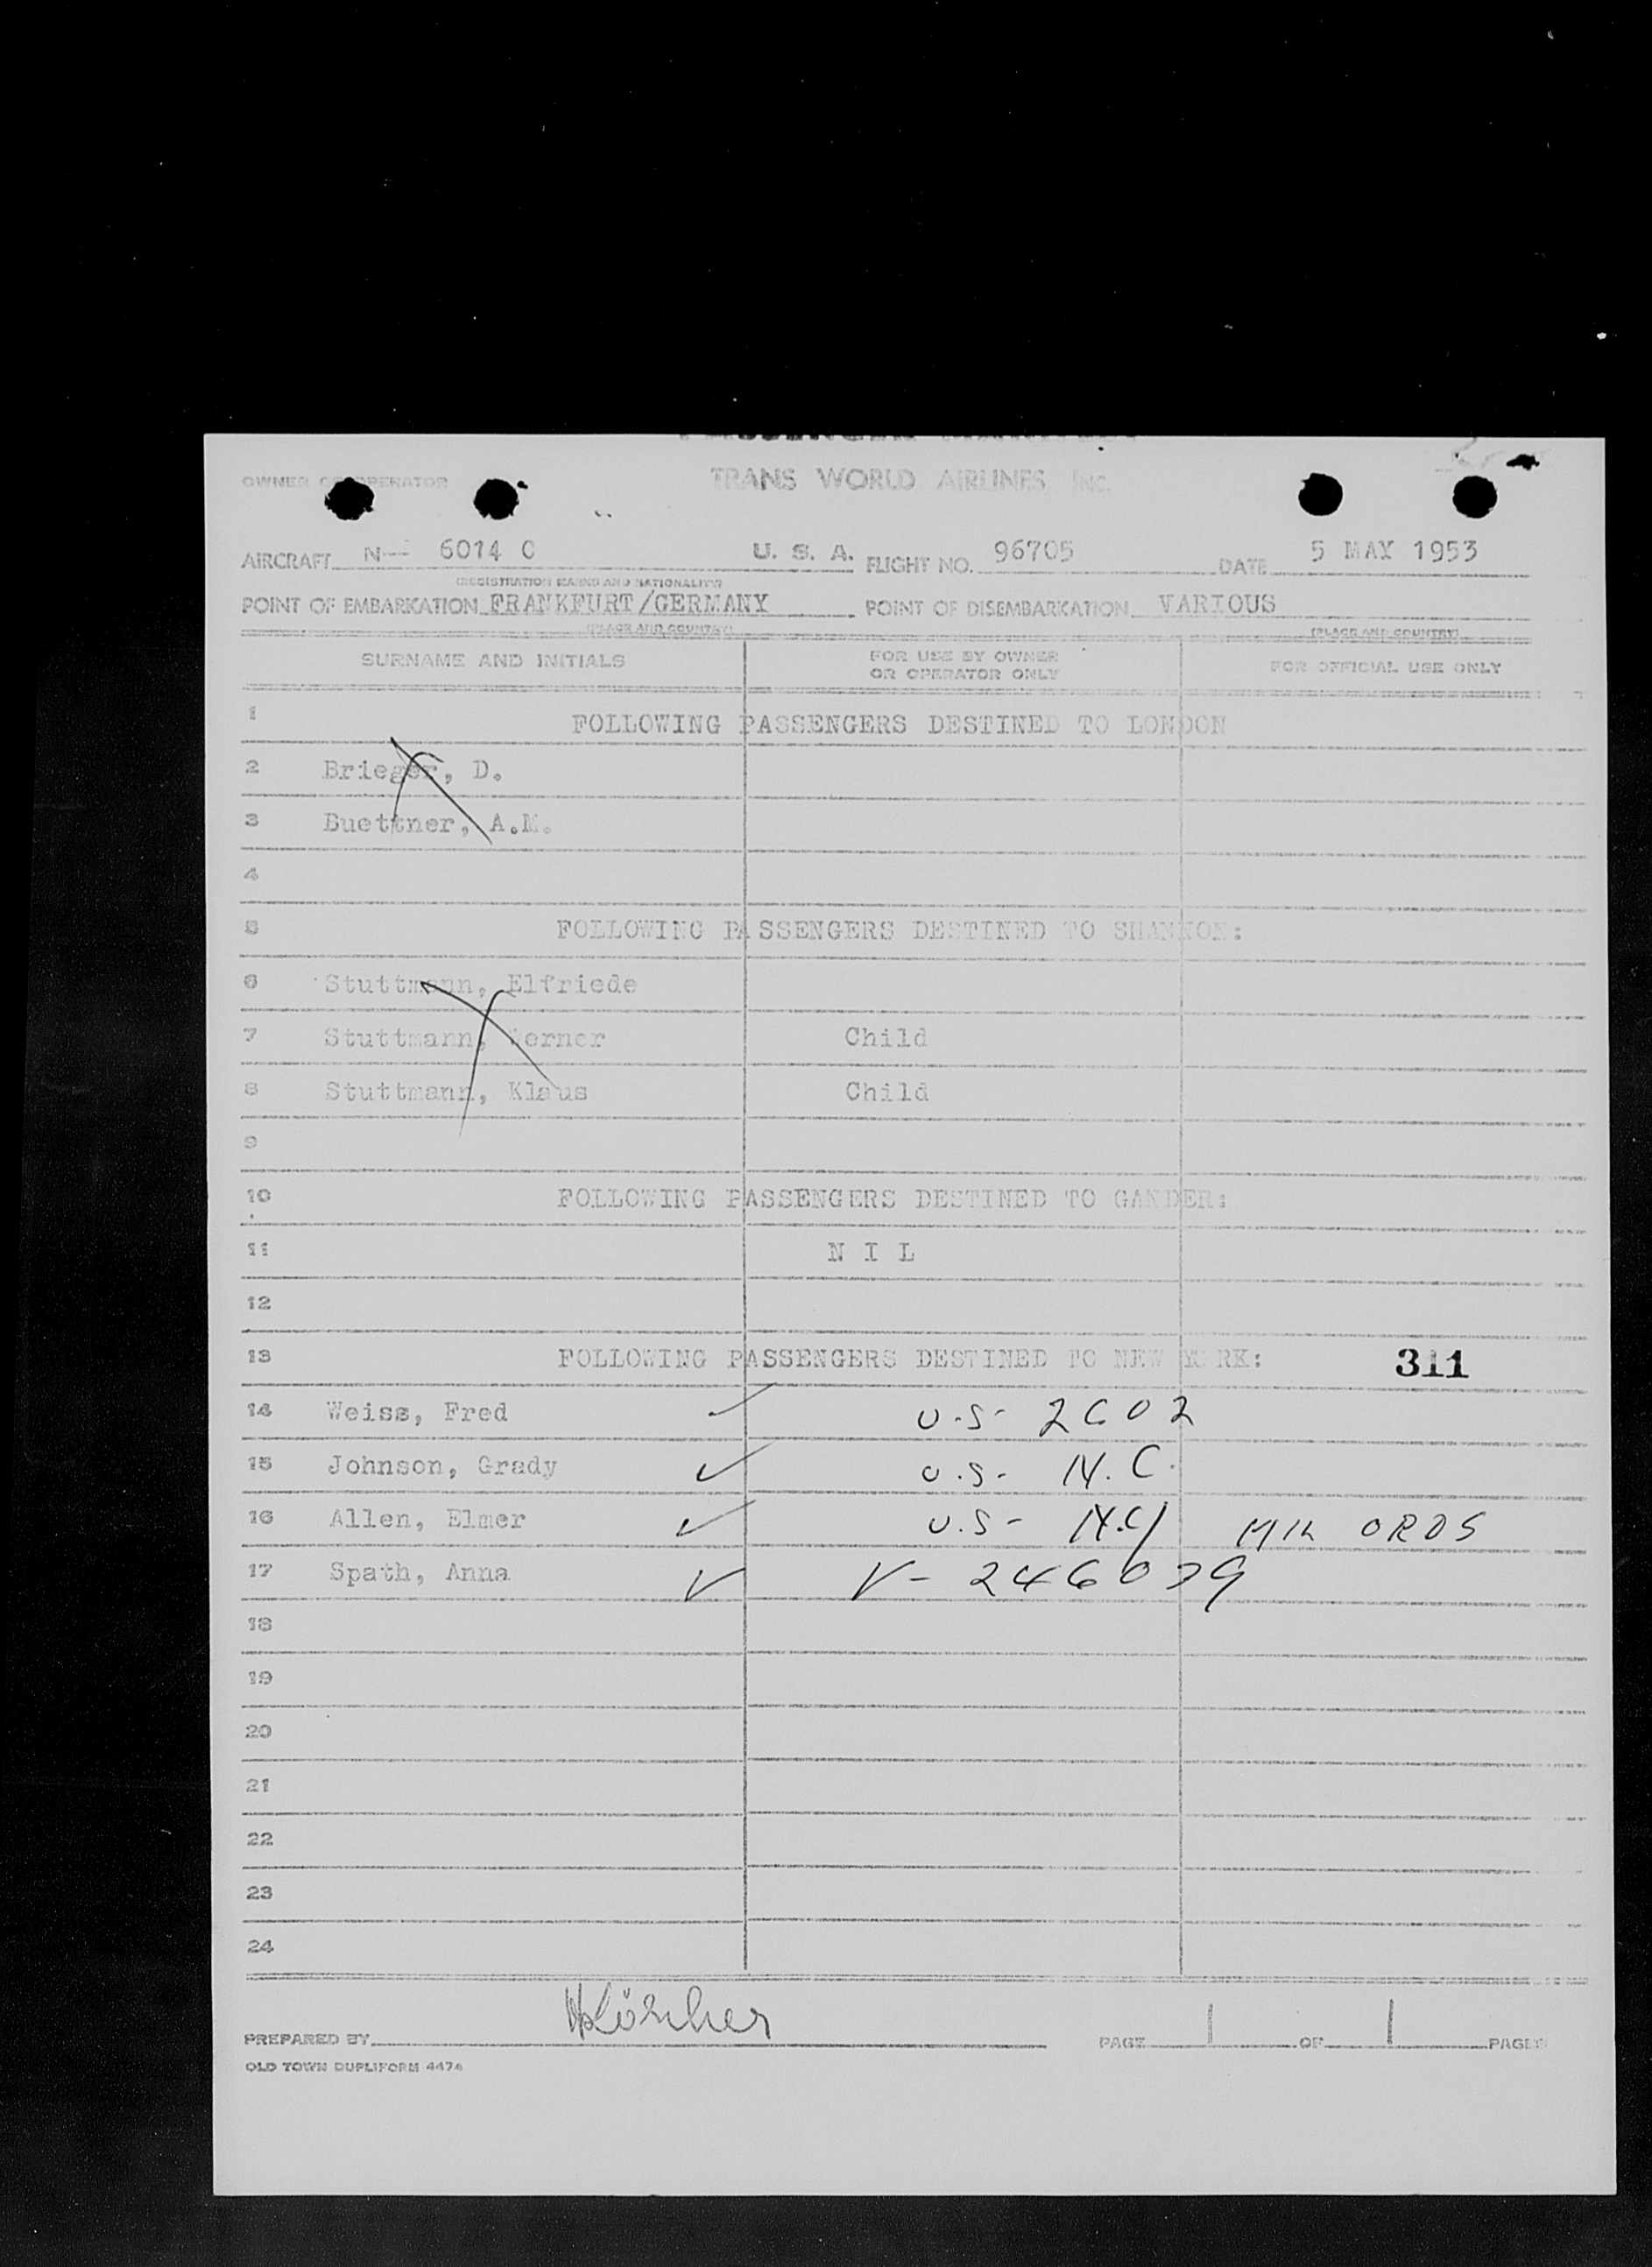 OWNER OR OPERATOR TRANS WORLD AIRLINES, INC.
AIRCRAFT N-- 6014 C U. S. A. FLIGHT NO. 96705 DATE 5 MAY 1953
(REGISTRATION MARKS AND NATIONALITY)
POINT OF EMBARKATION FRANKFURT/GERMANY POINT OF DISEMBARKATION VARIOUS
(PLACE AND COUNTRY) (PLACE AND COUNTRY)
SURNAME AND INITIALS FOR USE BY OWNER OR OPERATOR ONLY FOR OFFICIAL USE ONLY
1 FOLLOWING PASSENGERS DESTINED TO LONDON
2 Brieger, D.
3 Buettner, A.M.
4
5 FOLLOWING PASSENGERS DESTINED TO SHANNON:
6 Stuttmann, Elfriede
7 Stuttmann, Werner Child
8 Stuttmann, Klaus Child
9
10 FOLLOWING PASSENGERS DESTINED TO GANDER:
11 N I L
12
13 FOLLOWING PASSENGERS DESTINED TO NEW YORK: 311
14 Weiss, Fred ✓ U.S- 2602
15 Johnson, Grady ✓ U.S- N.C.
16 Allen, Elmer ✓ U.S- N.C/ MIL ORDS
17 Spath, Anna ✓ V- 246039
18
19
20
21
22
23
24
PREPARED BY PAGE 1 OF 1 PAGES
OLD TOWN DUPLIFORM 4474